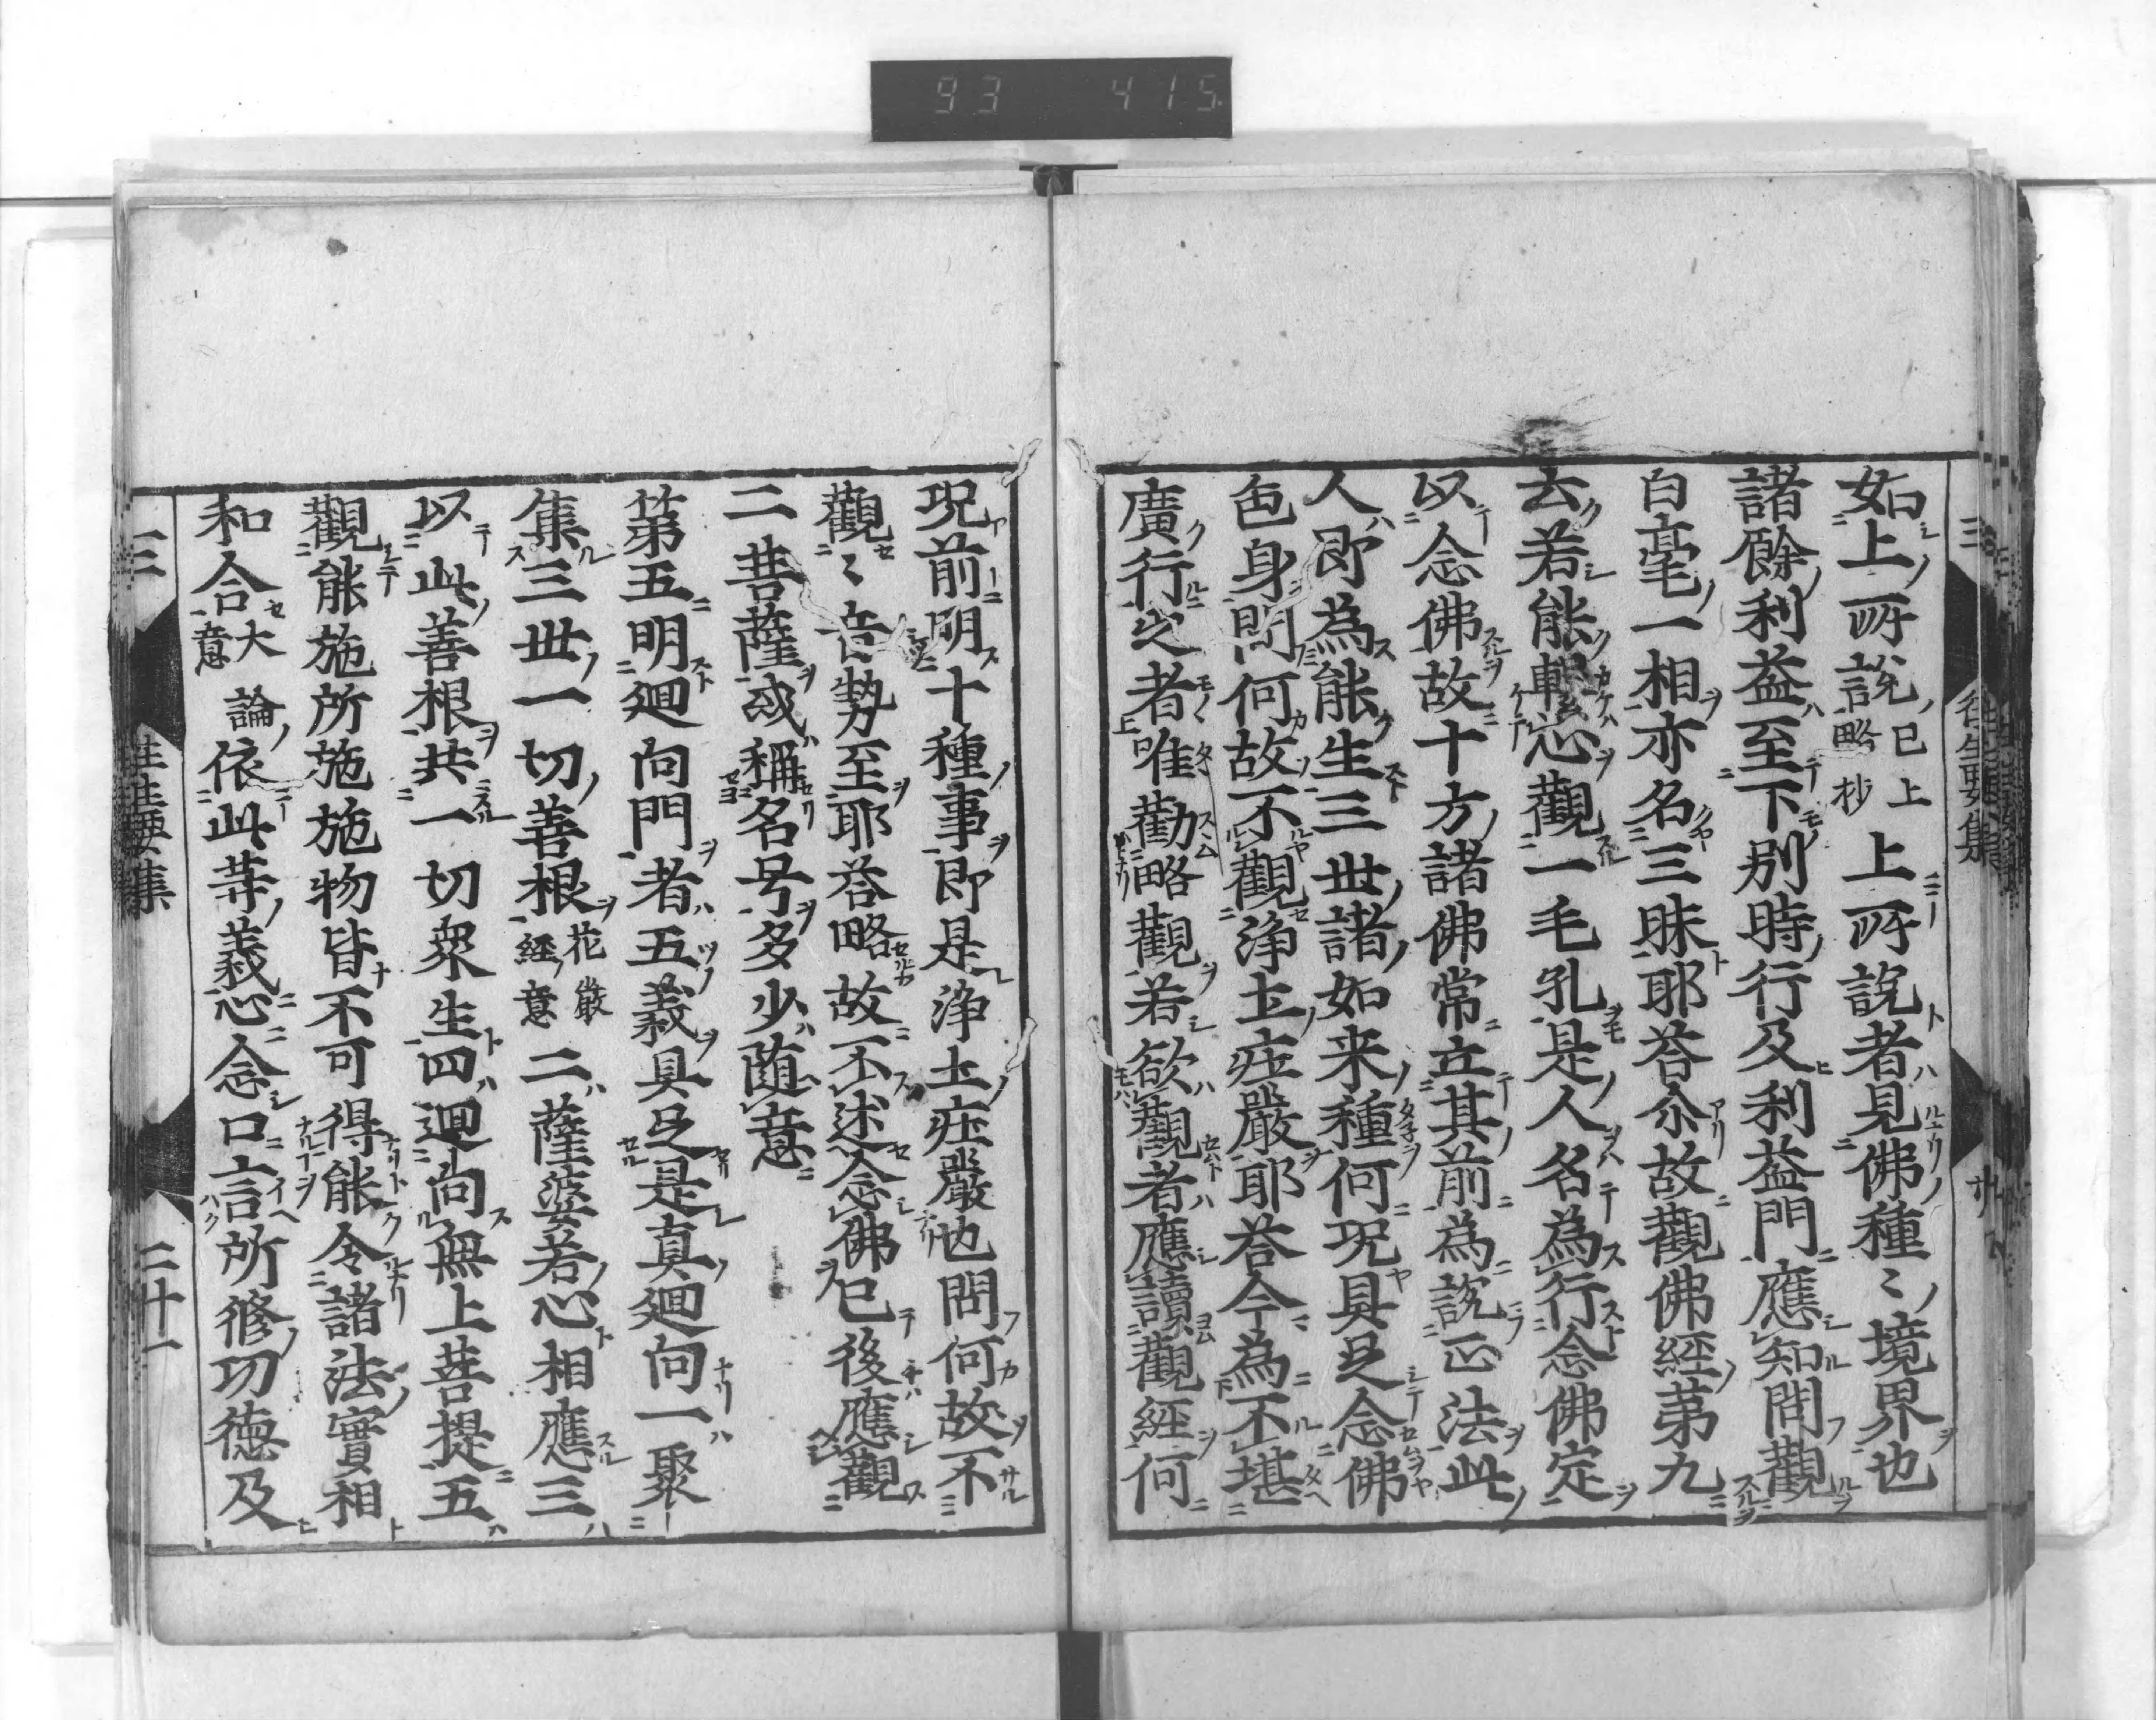 93 415
如上所說已上略抄上所說者見佛種〻境界也
諸餘利益至下別時行及利益門應知問觀
白毫一相亦名三昧耶荅尒故觀佛經第九
云若能繫心觀一毛孔是人名為行念佛定
以念佛故十方諸佛常立其前為說正法此
人即為能生三世諸如来種何況具足念佛
色身問何故不觀浄土荘嚴耶荅今為不堪
廣行之者唯勸略觀若欲觀者應讀觀經何
況前明十種事即是浄土荘嚴也問何故不
觀〻音勢至耶荅略故不述念佛已後應觀
二菩薩或稱名号多少随意
第五明廻向門者五義具足是真廻向一聚
集三世一切善根花嚴經意二薩婆若心相應三
以此善根共一切衆生四廻向無上菩提五
觀能施所施施物皆不可得能令諸法實相
和合大論意依此等義心念口言所修功徳及
三 往生要集 二十一